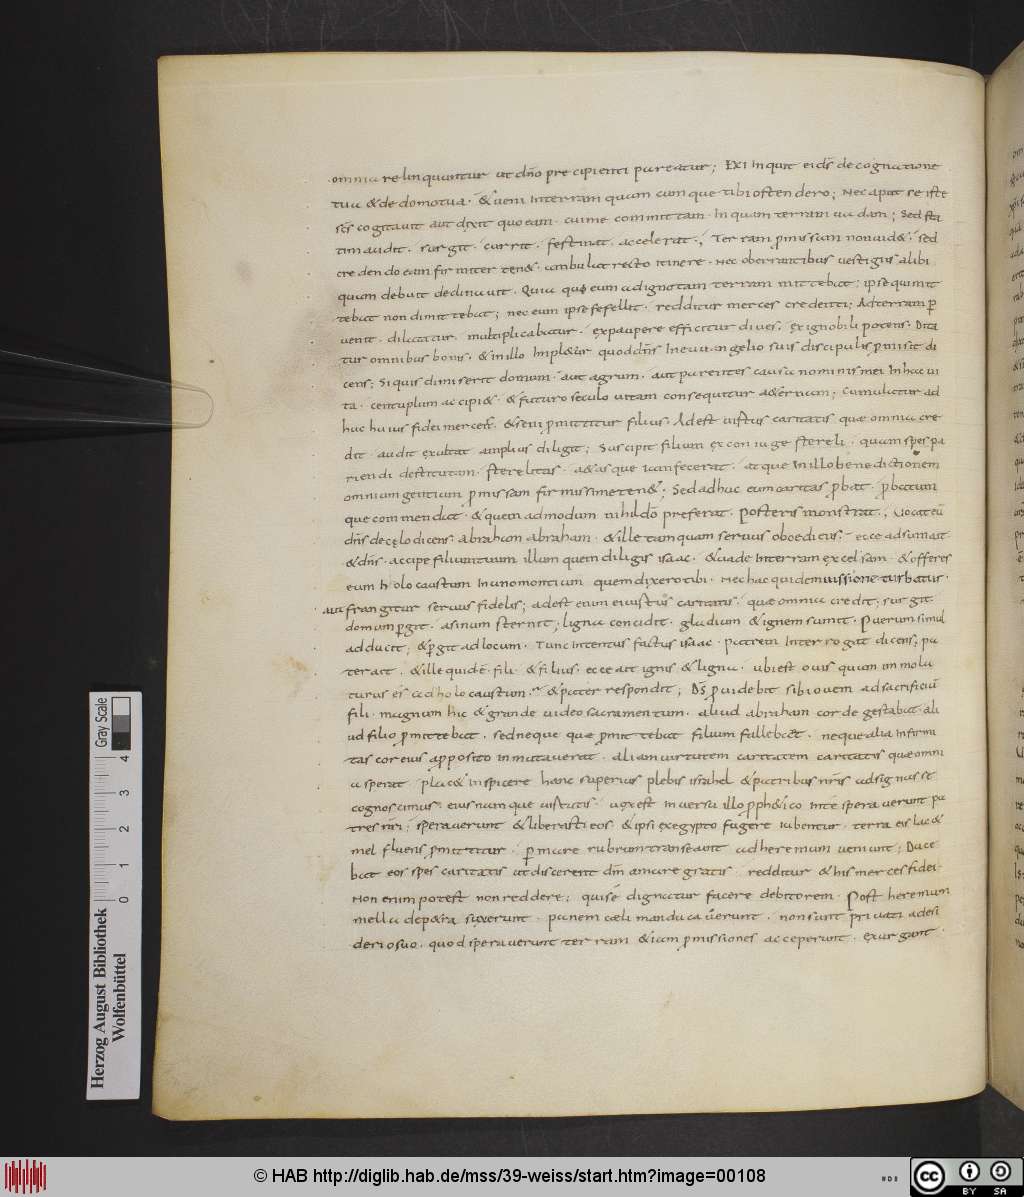 omnia relinquuntur ut dño precipienti pareatur; EXI Inquit ei dš de cognatione
tua & de domo tua. & ueni In terram quam cumque tibi ostendero; Nec aput se iste
scs cogitauit aut dixit quo eam. cui me committam. In quam terram uadam; Sed sta
tim audit. surgit. currit. festinat. accelerat; Terram pmissam non uid&. sed
credendo eam firmiter ten&. ambulat recto itinere. Nec oberrantibus uestigiis alibi
quam debuit declinauit. Quia quo eum ad ignotam terram mittebat; ipse qui mit
tebat non dimittebat; nec eum ipse fefellit. redditur merces credenti; Ad terram p
uenit. dilatatur. multiplicabatur. ex paupere efficitur diues. ex ignobili potens. Dita
tur omnibus bonis. & in illo Impl&ur quod dñs In euuangelio suis discipulis pmisit di
cens; Si quis dimiserit domum. aut agrum. aut parentes causa nominis mei In hac ui
ta. centuplum accipi&. & futuro seculo uitam consequitur a&ernam; Cumulatur ad
huc huius fidei merces. & seni pmittitur filius. Adest uirtus caritatis quae omnia cre
dit. audit exultat amplius diligit; Suscipit filium ex coniuge sterili. quam spes pa
riendi destitutam. sterelitas. a&as que iam fecerat. atque In illo benedictionem
omnium gentium pmissam firmissime ten&; Sed adhuc eum caritas pbat. pbatum
que commendat. & quem admodum nihil dõ preferat. posteris monstrat; Uocat eũ
dñs de celo dicens. abraham abraham. & ille tamquam seruus oboedicus. ecce adsum ait
& dñs. accipe filium tuum illum quem diligis isaac. & uade In terram excelsam. & offeres
eum holocaustum In uno montium quem dixero tibi. Nec hac quidem iussione turbatus.
aut frangitur seruus fidelis; adest enim ei uirtus caritatis. quae omnia credit; surgit.
domum pgit. asinum sternit; ligna concidit. gladium & ignem sumit. Puerum simul
adducit; & pgit ad locum. Tunc Intentus factus isaac. patrem Interrogat dicens; pa
ter ait. & ille quidẽ. fili. & filius. ecce ait ignis & ligna. ubi est ouis quam immola
turus es ad holocaustum. & pater respondit; Dš puidebit sibi ouem ad sacrificiũ
fili. magnum hic & grande uideo sacramentum. aliud abraham corde gestabat. ali
ud filio pmittebat. sed neque quae pmittebat filium fallebat. neque alia Infirmi
tas cor eius apposito inmutauerat. aliam uirtutem caritatem caritatis quae omni
a sperat. plac& inspicere hanc superius plebis israhel & patribus nrĩs adsignasse
cognoscimus. eius namque uirtutis. uox est In uersu illo pph&ico In te sperauerunt pa
tres nrĩ; sperauerunt & liberasti eos. & ipsi ex egypto fugere iubentur. terra eis lac &
mel fluens pmittitur. p mare rubrum transeunt ad heremum ueniunt; Duce
bat eos spes caritatis ut discerent dm̃ amare gratis. redditur & his merces fidei.
Non enim potest non reddere; qui se dignatur facere debitorem. Post heremum
mella de p&ra suxerunt. panem cæli manducauerunt. non sunt priuati a desi
derio suo. quod sperauerunt terram & iam pmissiones acceperunt. exurgant.
Herzog August Bibliothek
Wolfenbüttel
0 1 2 3 4
Gray Scale
© HAB http://diglib.hab.de/mss/39-weiss/start.htm?image=00108
cc BY SA